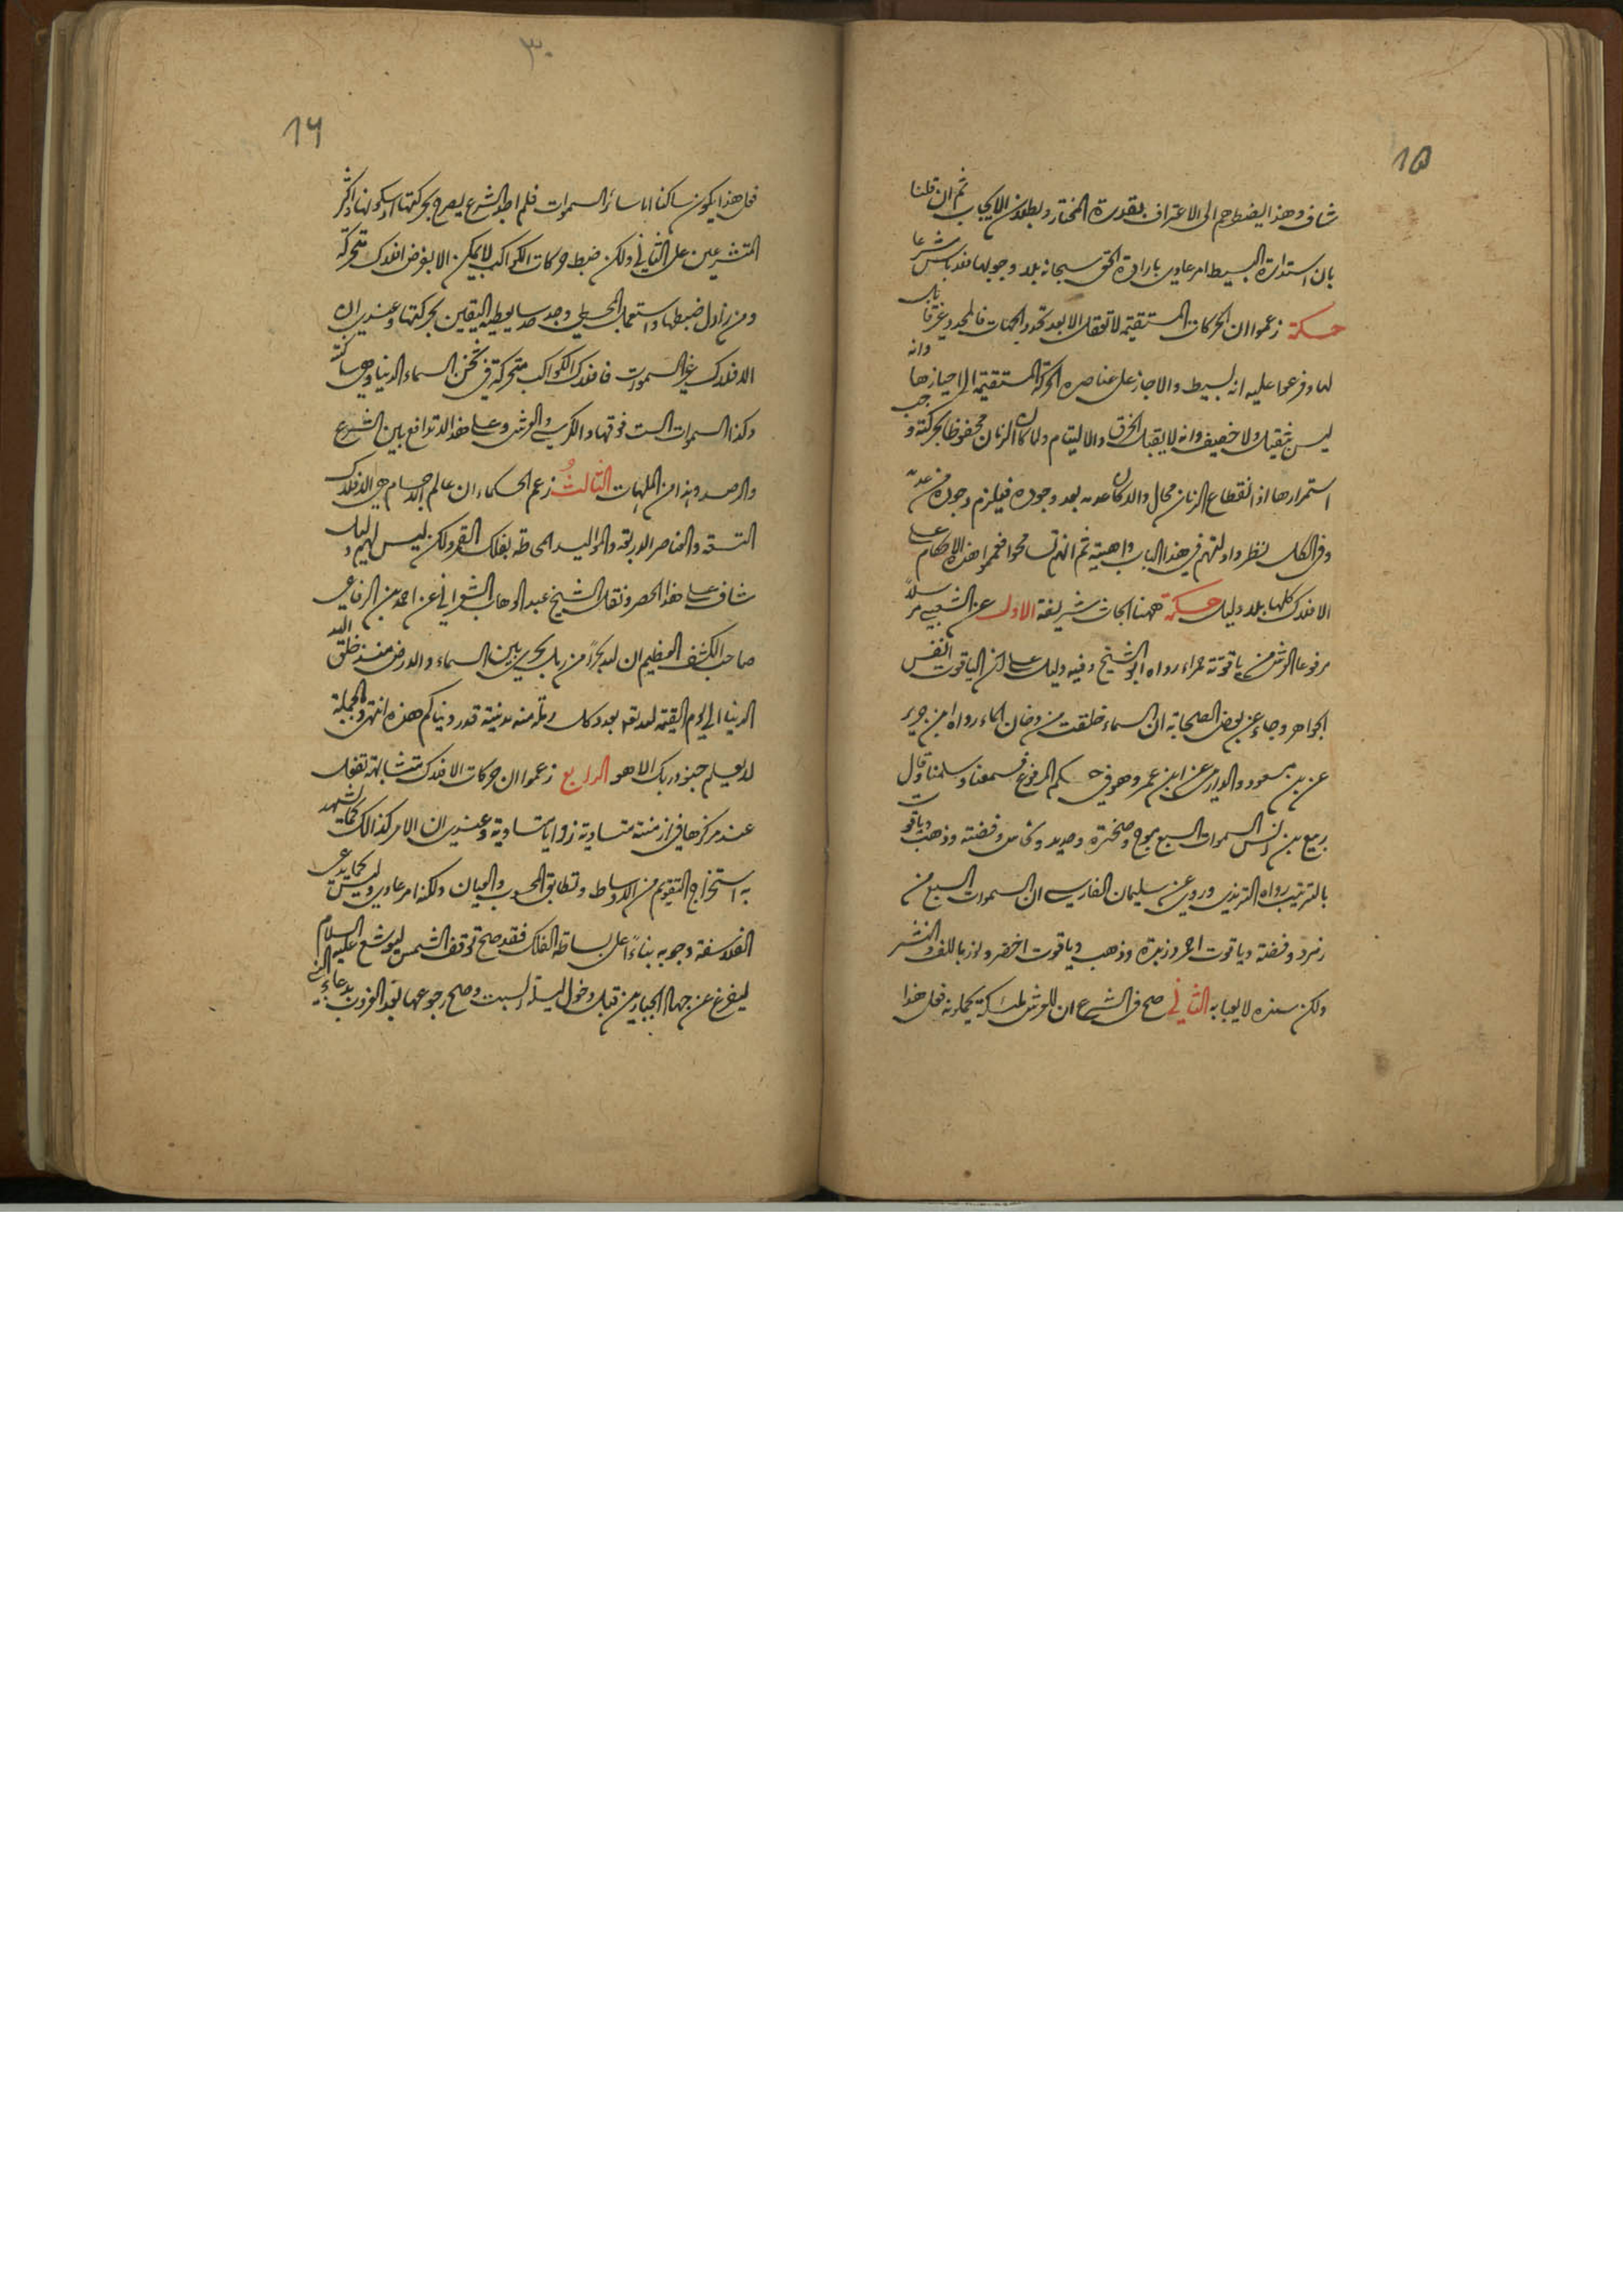 15
شاف وهذا يضطرهم الى الاعتراف بقدرة المختار وبطلان الايجاب ثم ان قلنا
بان استدارة البسيط امر عادى بارادة الحق سبحانه بلا وجوب لها فلا باس شرعا
حكمة زعموا ان الحركات المستقيمة لا تعقل الا بعد تحدد الجهات فالمحدد غير قابل
لها وفرعوا عليه انه بسيط والا جاز على عناصره الحركة المستقيمة الى احيازها وانه
ليس بثقيل ولا خفيف وانه لا يقبل الخرق والالتيام ولما كان الزمان محفوظا بحركته وجب
استمرارها اذ انقطاع الزمان محال والا لكان عدمه بعد وجوده فيلزم وجوده من عدمه
وفى الكل نظر وادلتهم فى هذا الباب واهية ثم انهم تسامحوا فعمموا هذه الاحكام على
الافلاك كلها بلا دليل حكمة ههنا ابحاث شريفة الاول عن الشعبى مرسلا
مرفوعا العرش من ياقوتة حمراء رواه ابو الشيخ وفيه دليل على ان الياقوت انفس
الجواهر وجاء عن بعض الصحابة ان السماء خلقت من دخان الماء رواه ابن جرير
عن بن مسعود والدارمى عن ابن عمر وهو فى حكم المرفوع فسمعنا وسلمنا وقال
ربيع بن انس السموات السبع موج وصخرة وحديد ونحاس وفضة وذهب وياقوت
بالترتيب رواه الترمذى وروى عن سليمان الفارسى ان السموات السبع من
زمرد وفضة وياقوت احمر وزبدة وذهب وياقوت اخضر ونور باللف والنشر
ولكن سنده لا يعبا به الثانى صح فى الشرع ان للعرش ملئكة يحملونه فعل هذا
٣٠
16
فعل هذا يكون ساكنا اما سائر السموات فلم اجد الشرع يصرح بحركتها او سكونها واكثر
المتشرعين على الثانى ولكن ضبط حركات الكواكب لا يمكن الا بفرض افلاك متحركة
ومن زاول ضبطها واستعمل المجسطى وجد حدسا يعطيه اليقين بحركتها وعندى ان
الافلاك غير السموات فافلاك الكواكب متحركة فى ثخن السماء الدنيا وهى ساكنة
وكذا السموات الست فوقها والكرسى والعرش وعلى هذا لا تدافع بين الشرع
والرصد وهذا من الملهمات الثالث زعم الحكماء ان عالم الاجسام هى الافلاك
التسعة والعناصر الاربعة والمواليد المحاطة بفلك القمر ولكن ليس لهم دليل
شاف على هذا الحصر ونقل الشيخ عبد الوهاب الشعرانى عن احمد بن الرفاعى
صاحب الكشف العظيم ان لله بحرا من رمل يجرى بين السماء والارض منذ خلق الله
الدنيا الى يوم القيمة لله تعالى بعدد كل رملة منه مدينة قدر دنياكم هذه انتهى وبالجملة
لا يعلم جنود ربك الا هو الرابع زعموا ان حركات الافلاك متشابهة تفعل
عند مركزها فى ازمنة متساوية زوايا متساوية وعندى ان الامر كذالك كما تشهد
به استخراج التقويم من الاوساط وتطابق المحسوب والعيان ولكنه امر عادى وليس كما يدعى
الفلاسفة وجوبه بناءً على بساطة الفلك فقد صح توقف الشمس ليوشع عليه السلام
ليفرغ عن جهاد الجبارين قبل دخول ليلة السبت وصح رجوعها بعد الغروب بدعاء النبى